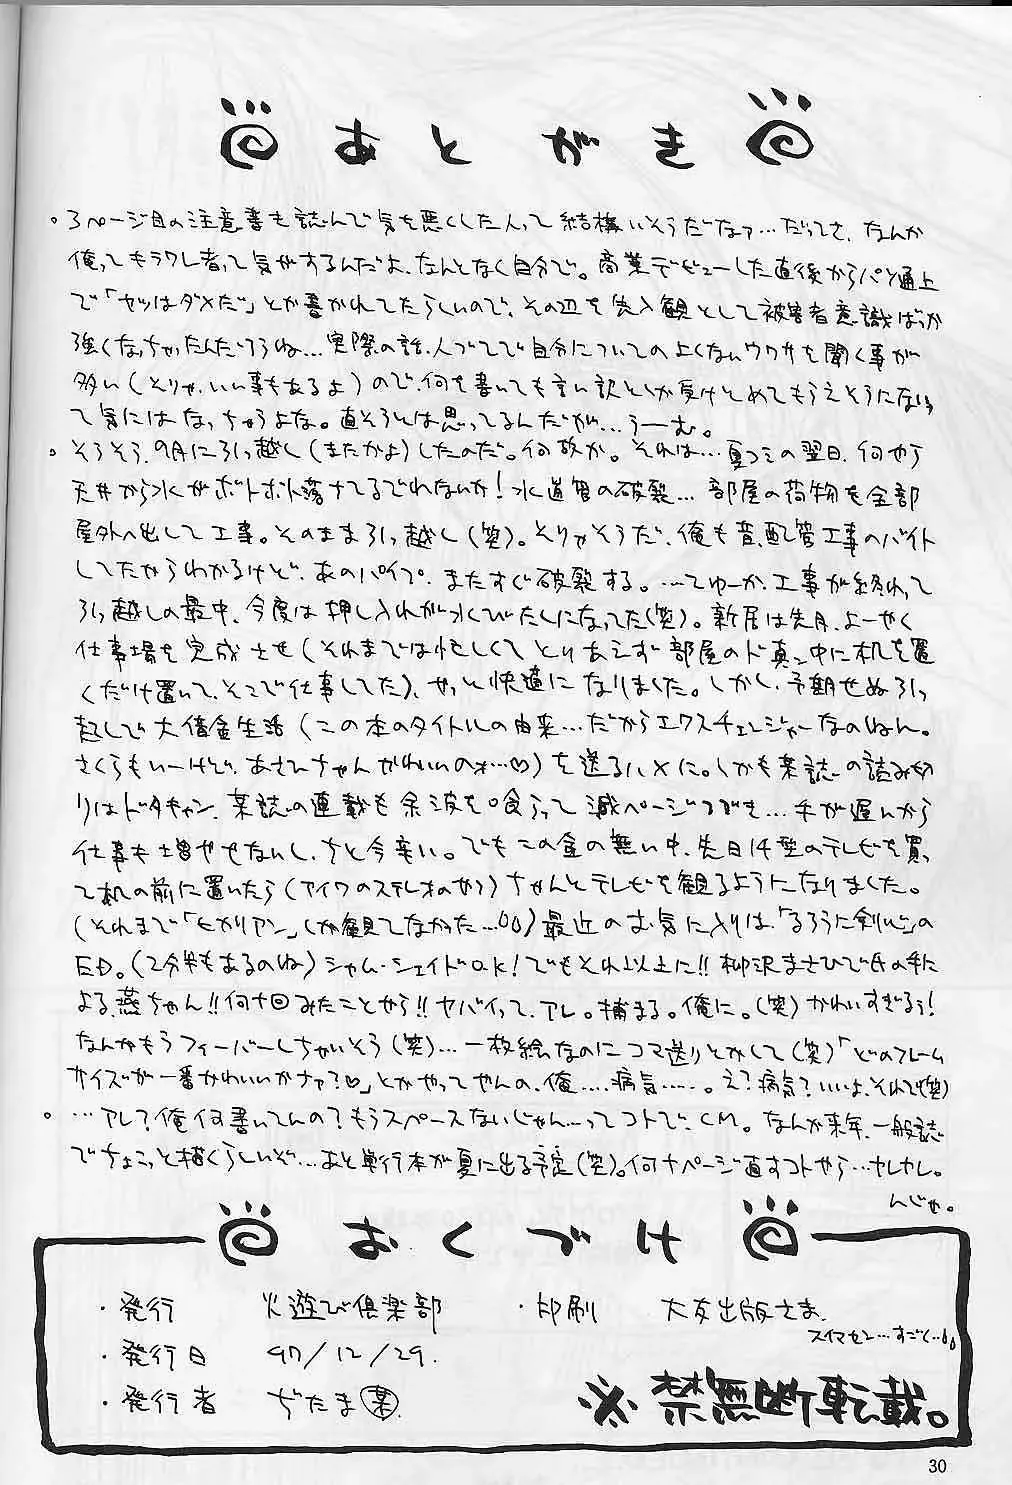 あとがき
。3ページ目の注意書も読んで気を悪くした人って結構いそうだなァ…だってさ、なんか
俺ってキラワレ者って気がするんだよ、なんとなく自分で。商業デビューした直後からパソ通上
で「ヤツはダメだ」とか書かれてたらしいので、その辺を先入観として被害者意識ばっか
強くなっちゃったんだろうね…実際の話、人づてで自分についての良くないウワサを聞く事が
多い(そりゃ、いい事もあるよ)ので、何を書いても言い訳としか受けとめてもらえそうにない
て気にはなっちゃうよな。直そうとは思ってるんだが…うーむ。
。そろそろ、9月に引っ越し(またかよ)したのだ。何故か。それは…夏コミの翌日、何やら
天井から水がボトボト落ちてるでわないか!水道管の破裂…部屋の荷物を全部
屋外へ出して工事。そのまま引っ越し(笑)。そりゃそうだ、俺も昔、配管工事のバイト
してたからわかるけど、あのパイプ、またすぐ破裂する。…てゆーか、工事が終わって
引っ越しの最中、今度は押し入れが水びたしになってた(笑)。新居は先月、よーやく
仕事場を完成させ(それまでは忙しくてとりあえず部屋のド真ン中に机を置
くだけ置いて、そこで仕事してた)、やっと快適になりました。しかし、予期せぬ引っ
越しで大借金生活(この本のタイトルの由来…だからエクスチェンジャーなのねん。
さくらもいーけど、あさひちゃんかわいいのォ…♡)を送るハメに。しかも某誌の読み切
りはドタキャン、某誌の連載も余波を喰らって減ページつづき…手が遅んから
仕事も増やせないし、ちと今辛い。でもこの金の無い中、先日14型のテレビを買っ
て机の前に置いたら(アイワのステレオのやつ)ちゃんとテレビを観るようになりました。
(それまで「ヒカリアン」しか観てなかった…)最近のお気に入りは、「るろうに剣心」の
ED。(2分半もあるのね)シャム・シェイドO.K!でもそれ以上に!!柳沢まさひで氏の手に
よる燕ちゃん!!何十回みたことやら!!ヤバイって、アレ。捕まる。俺に。(笑)かわいすぎるぅ!
なんかもうフィーバーしちゃいそう(笑)…一枚絵なのにコマ送りとかして(笑)「どのフレーム
サイズが一番かわいいかナァ?♡」とかやってやんの、俺……病気……。え?病気?いいよ、それで(笑)
。…アレ?俺何書いてんの?もうスペースないじゃん…ってコトで、CM。なんか来年、一般誌
でちょこっと描くらしいぞ…あと単行本が夏に出る予定(笑)。何十ページ直すコトやら…ヤレヤレ。
んじゃ。
おくづけ
・発行 火遊び倶楽部 ・印刷 大友出版さま
スイマセン…すごく…
・発行日 97/12/29.
・発行者 ぢたま(某).
※禁無断転載。
30